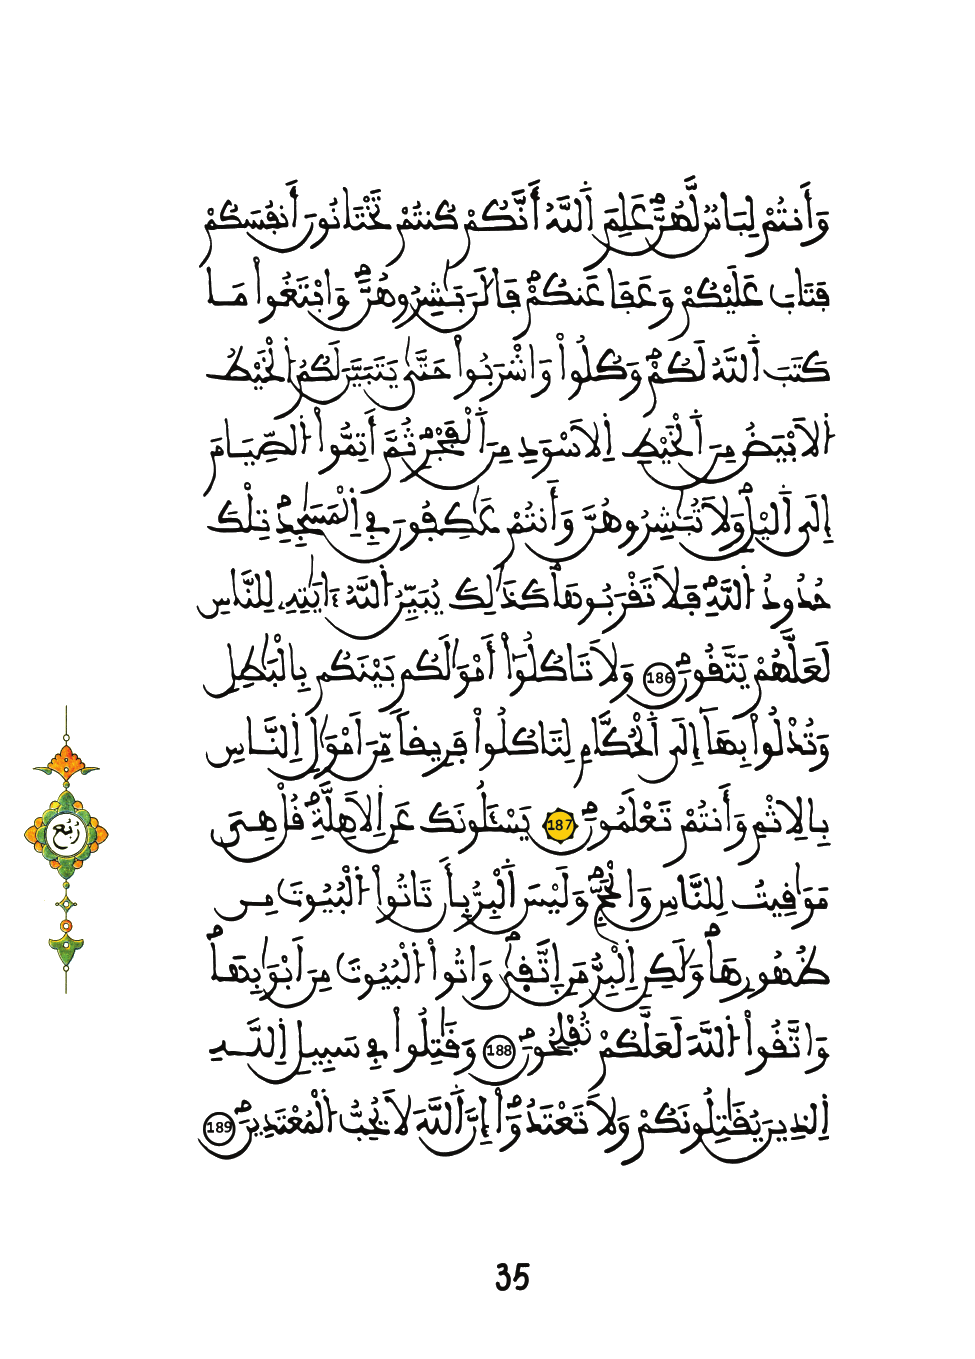 وَأَنتُمْ لِبَاسٞ لَّهُنَّۖ عَلِمَ اَ۬للَّهُ أَنَّكُمْ كُنتُمْ تَخْتَانُونَ أَنفُسَكُمْ
فَتَابَ عَلَيْكُمْ وَعَفَا عَنكُمْۖ فَالَٰنَ بَٰشِرُوهُنَّۖ وَابْتَغُواْ مَا
كَتَبَ اَ۬للَّهُ لَكُمْۖ وَكُلُواْ وَاشْرَبُواْ حَتَّىٰ يَتَبَيَّنَ لَكُمُ اُ۬لْخَيْطُ
اُ۬لَابْيَضُ مِنَ اَ۬لْخَيْطِ اِ۬لَاسْوَدِ مِنَ اَ۬لْفَجْرِۖ ثُمَّ أَتِمُّواْ اُ۬لصِّيَامَ
إِلَى اَ۬ليْلِۖ وَلَا تُبَٰشِرُوهُنَّ وَأَنتُمْ عَٰكِفُونَ فِے اِ۬لْمَسَٰجِدِۖ تِلْكَ
حُدُودُ اُ۬للَّهِۖ فَلَا تَقْرَبُوهَاۖ كَذَٰلِكَ يُبَيِّنُ اُ۬للَّهُ ءَايَٰتِهِۦ لِلنَّاسِ
لَعَلَّهُمْ يَتَّقُونَۖ 186 وَلَا تَاكُلُوٓاْ أَمْوَٰلَكُم بَيْنَكُم بِالْبَٰطِلِ
وَتُدْلُواْ بِهَآ إِلَى اَ۬لْحُكَّامِ لِتَاكُلُواْ فَرِيقاٗ مِّنَ اَمْوَٰلِ اِ۬لنَّاسِ
بِالِاثْمِ وَأَنتُمْ تَعْلَمُونَۖ 187 يَسْـَٔلُونَكَ عَنِ اِ۬لَاهِلَّةِۖ قُلْ هِيَ
مَوَٰقِيتُ لِلنَّاسِ وَالْحَجِّۖ وَلَيْسَ اَ۬لْبِرُّ بِأَن تَاتُواْ اُ۬لْبُيُوتَ مِن
ظُهُورِهَاۖ وَلَٰكِنِ اِ۬لْبِرُّ مَنِ اِ۪تَّقٰيۖ وَاتُواْ اُ۬لْبُيُوتَ مِنَ اَبْوَٰبِهَاۖ
وَاتَّقُواْ اُ۬للَّهَ لَعَلَّكُمْ تُفْلِحُونَۖ 188 وَقَٰتِلُواْ فِے سَبِيلِ اِ۬للَّهِ
اِ۬لذِينَ يُقَٰتِلُونَكُمْ وَلَا تَعْتَدُوٓاْۖ إِنَّ اَ۬للَّهَ لَا يُحِبُّ اُ۬لْمُعْتَدِينَۖ 189
رُبُع
35